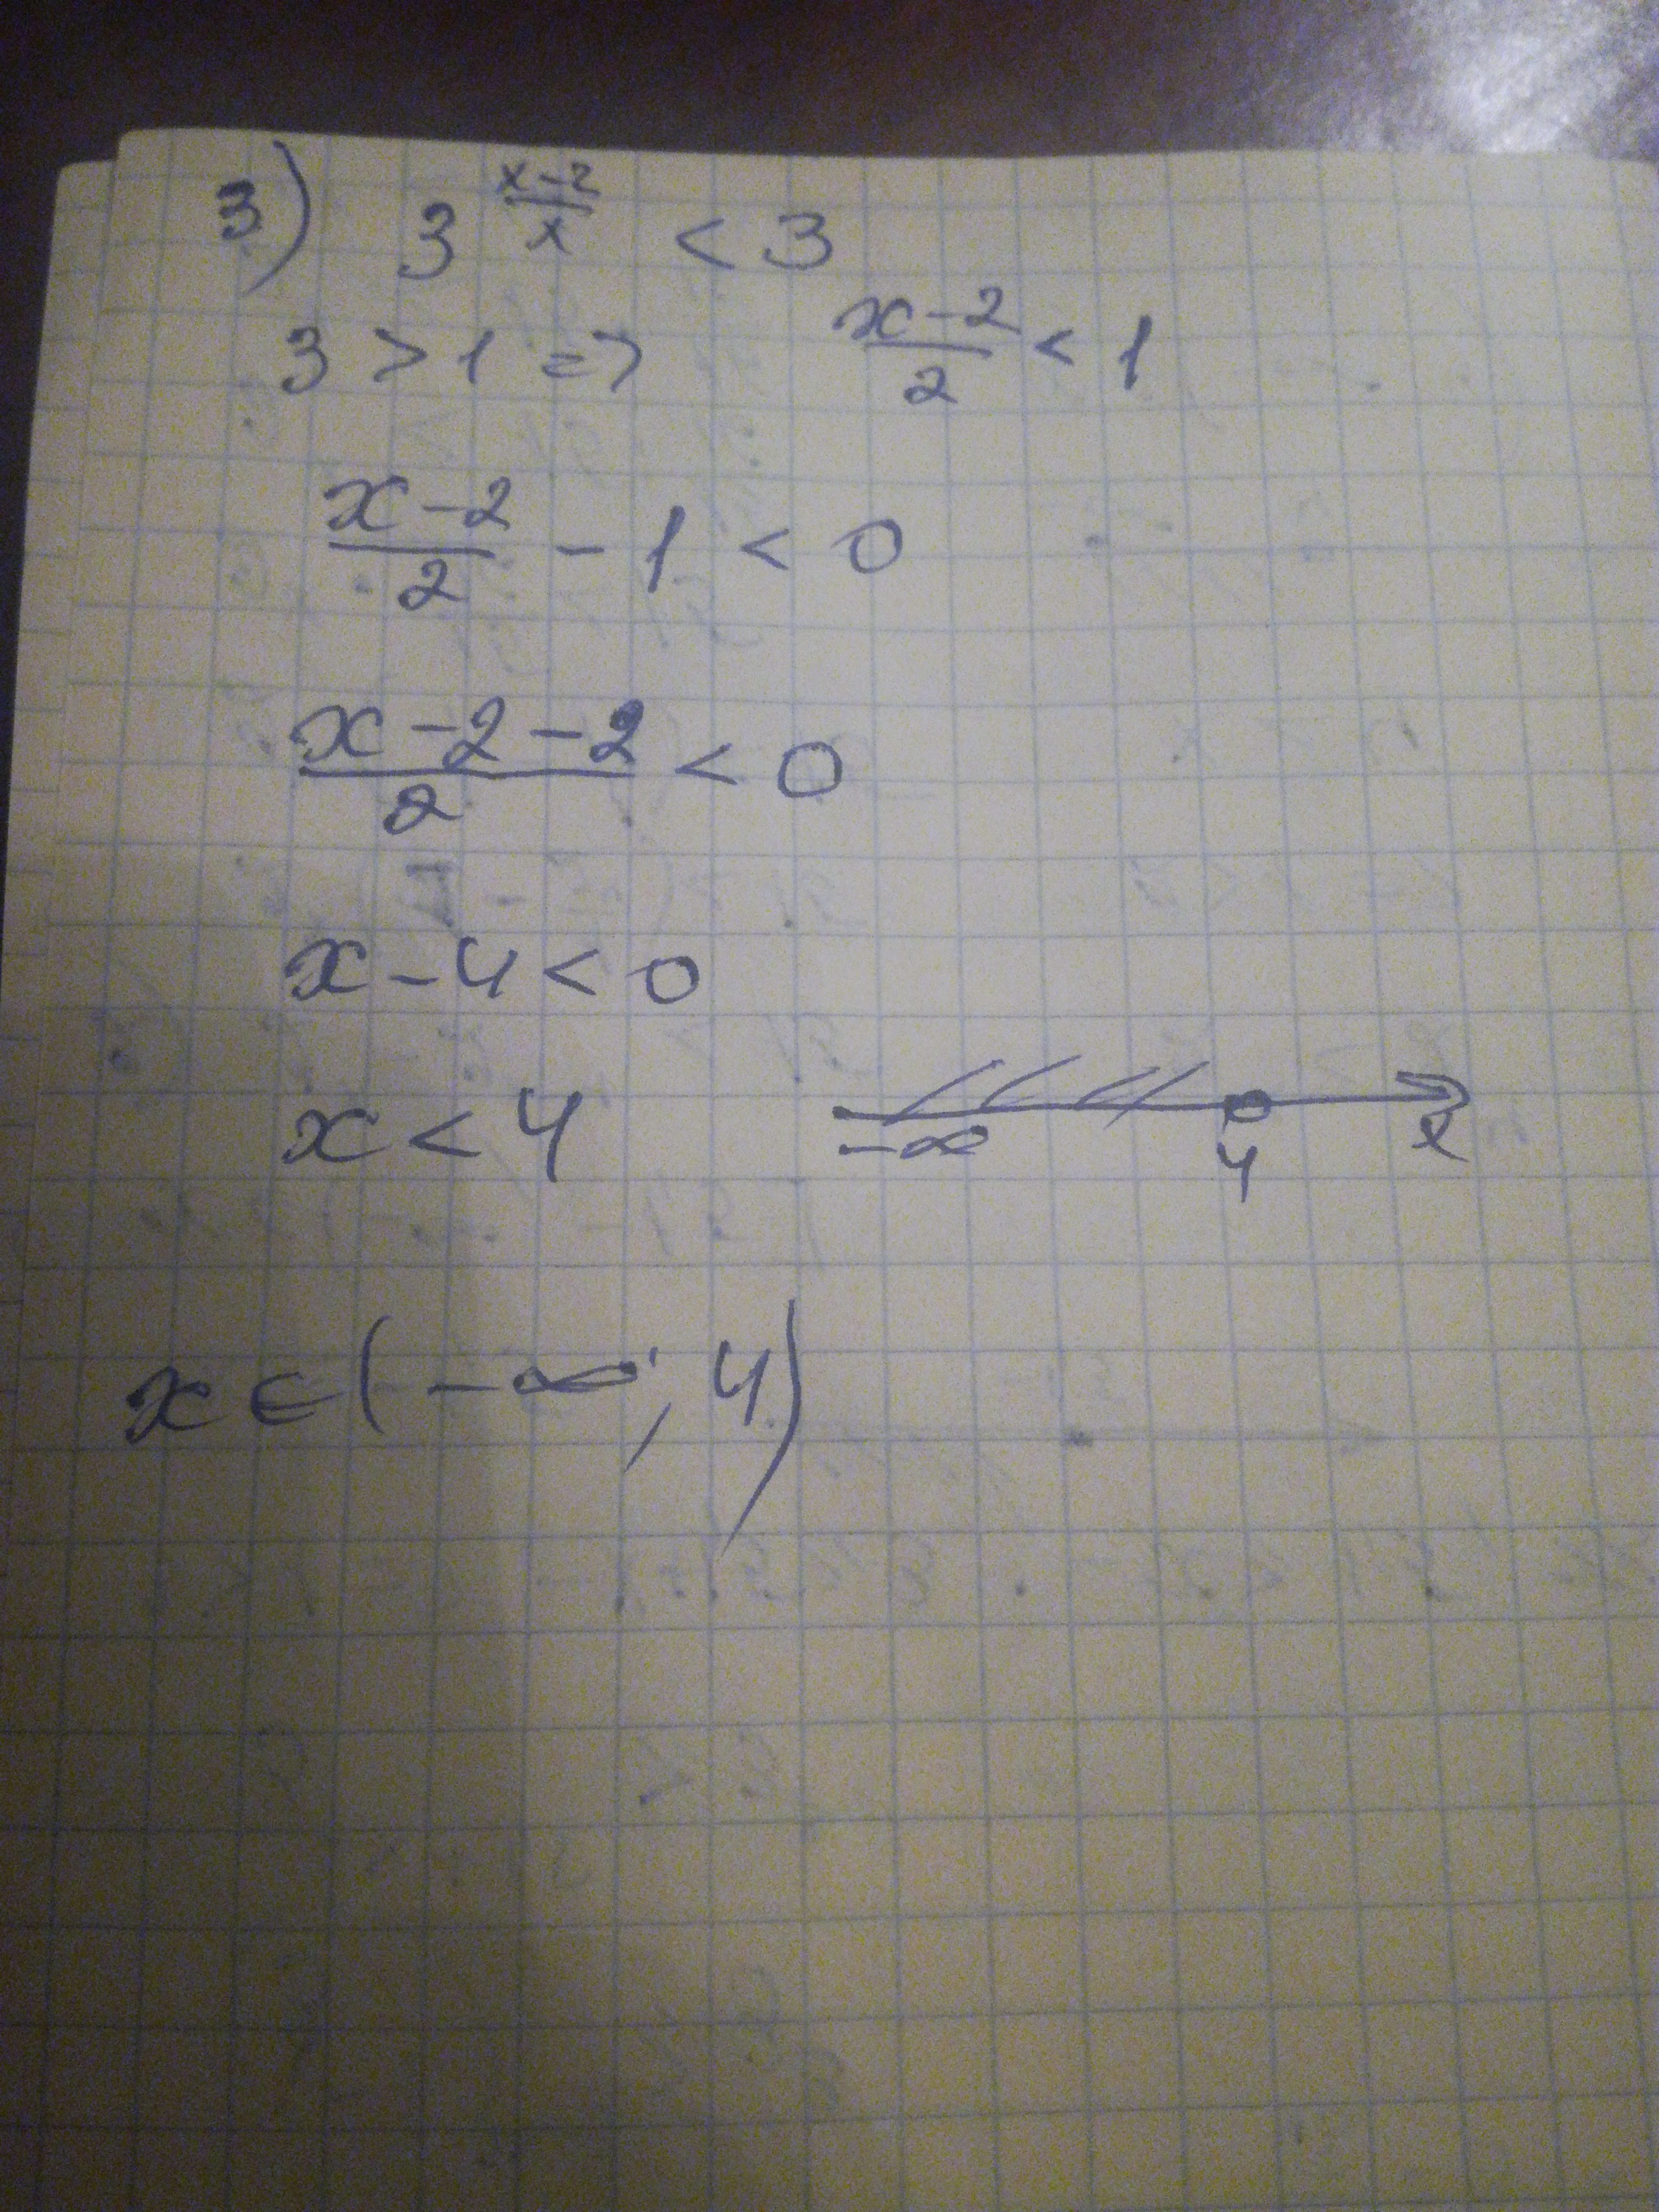 3) 3^{\frac{x-2}{x}} < 3
3 > 1 => \frac{x-2}{2} < 1
\frac{x-2}{2} - 1 < 0
\frac{x-2-2}{2} < 0
x - 4 < 0
x < 4
-∞ 4 x
x ∈ (-∞; 4)